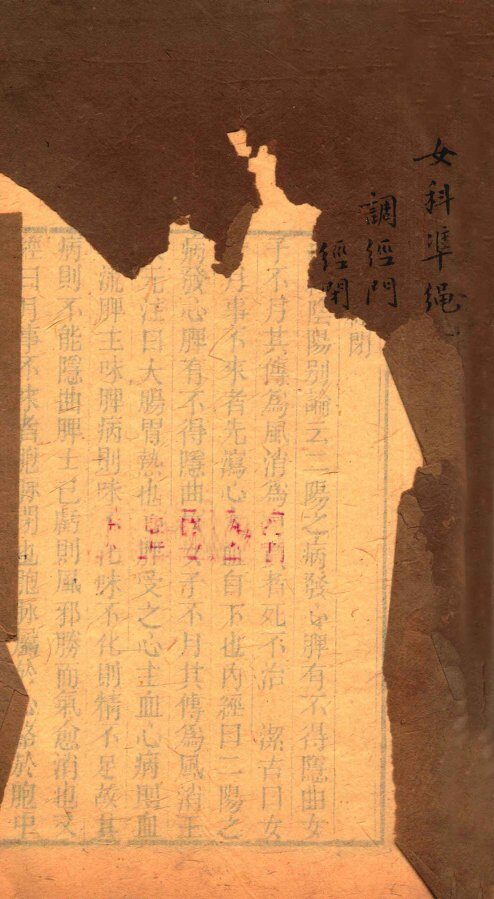 女科準繩
調經門
經閉
閉
陰陽別論云二陽之病發心脾有不得隱曲女
子不月其傳為風消為息賁者死不治 潔古曰女
月事不來者先瀉心火血自下也內經曰二陽之
病發心脾有不得隱曲故女子不月其傳為風消王
注曰大腸胃熱也心脾受之心主血心病則血
流脾主味脾病則味不化味不化則精不足故其
病則不能隱曲脾土已虧則風邪勝而氣愈消也又
經曰月事不來者胞脈閉也胞脈屬於心絡於胞中